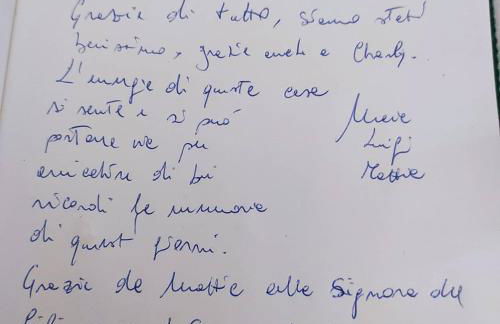 Grazie di tutto, siamo stati
benissimo, grazie anche a Charly.
L'energie di queste case
si sente e si può
portare via per
arricchire di bei
ricordi le memorie
di questi giorni.
Luigi
Mattia
Grazie da Mattia alla Signora del